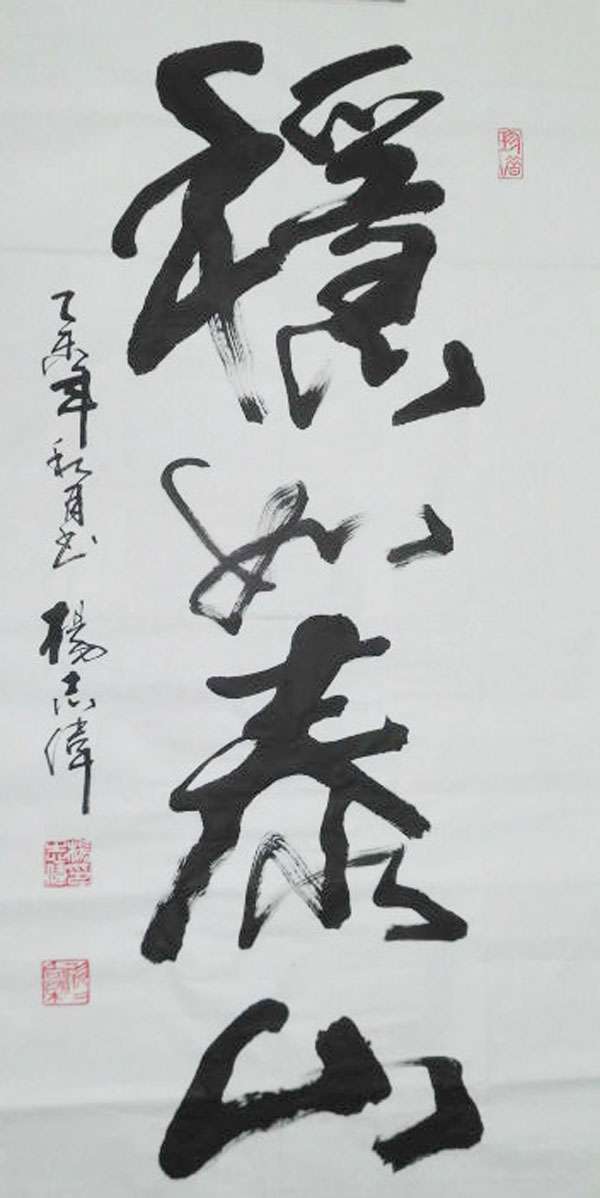 穩如泰山
乙未年秋月书 楊志偉